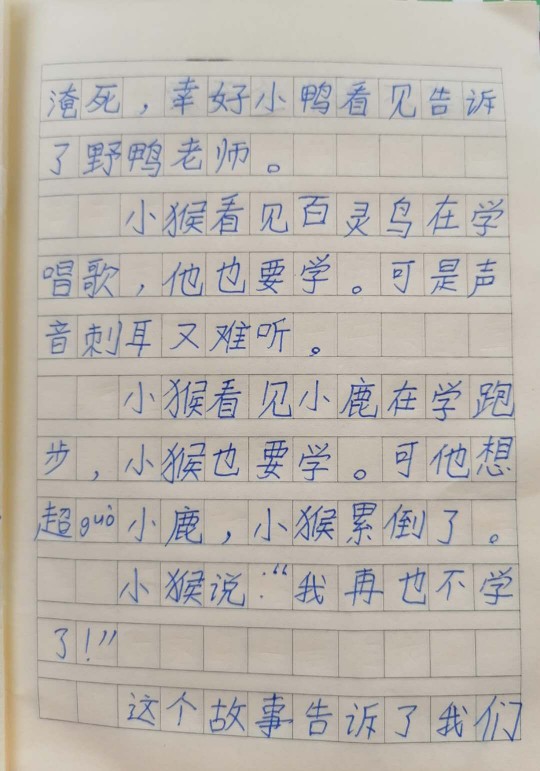 淹死，幸好小鸭看见告诉
了野鸭老师。
小猴看见百灵鸟在学
唱歌，他也要学。可是声
音刺耳又难听。
小猴看见小鹿在学跑
步，小猴也要学。可他想
超guò小鹿，小猴累倒了。
小猴说：“我再也不学
了！”
这个故事告诉了我们